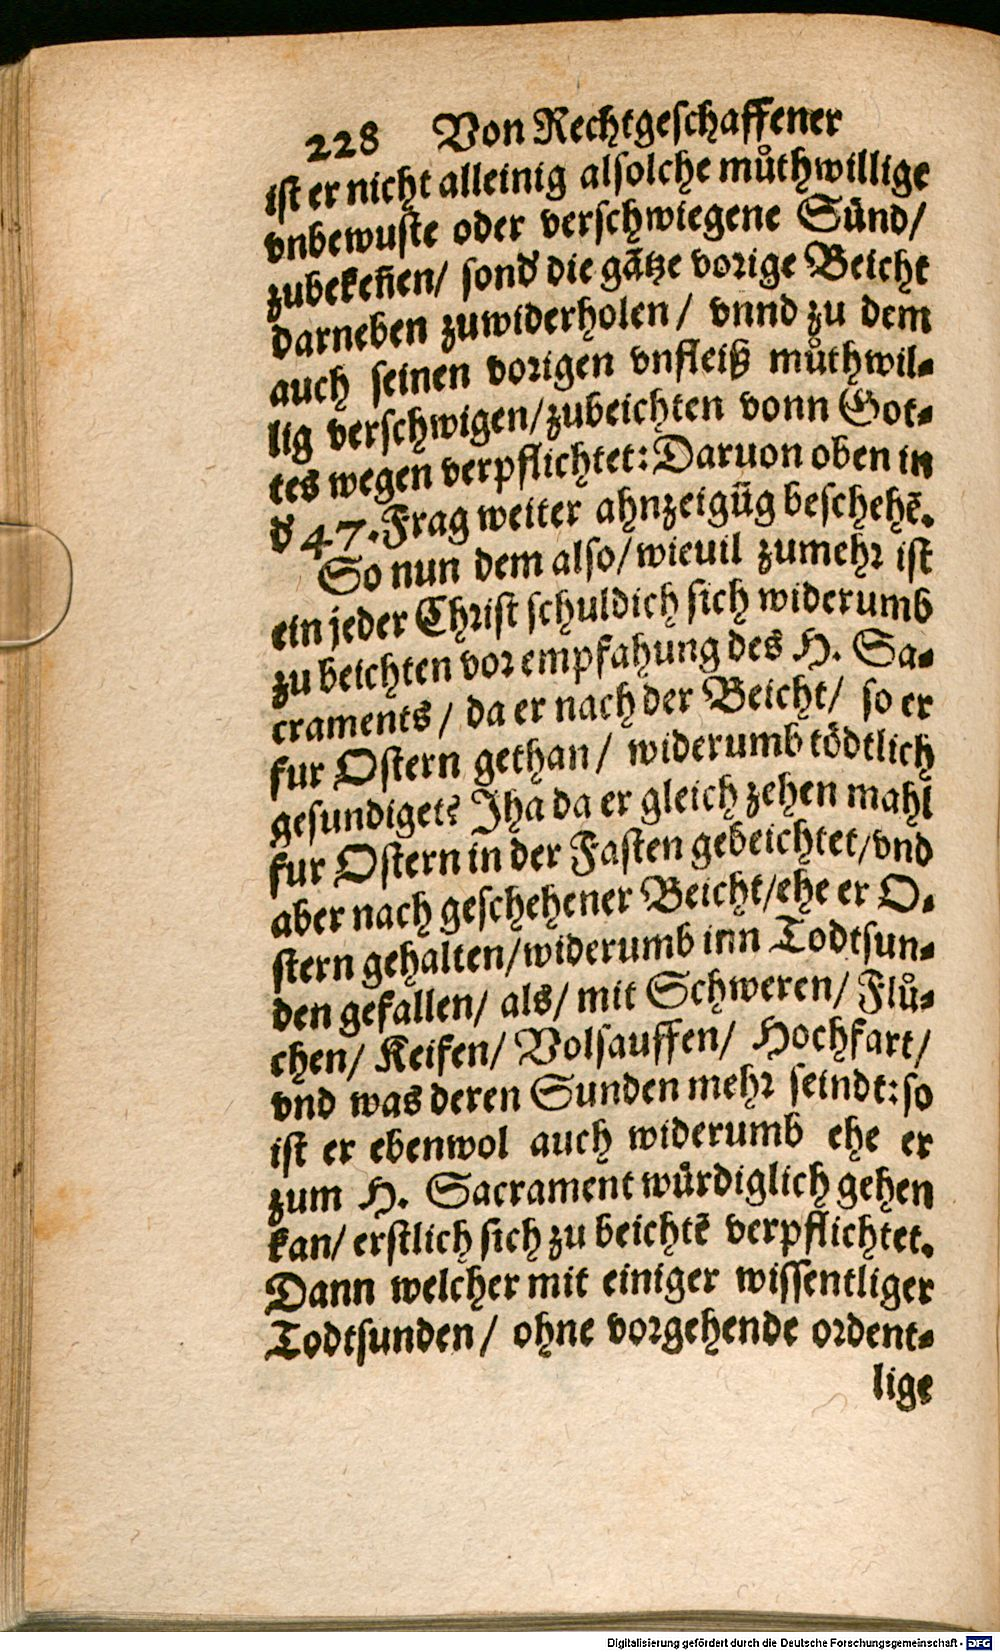 228 Von Rechtgeschaffener
ist er nicht alleinig alsolche můthwillige
vnbewuste oder verschwiegene Sünd/
zubekeñen/ sond' die gãtze vorige Beicht
darneben zuwiderholen/ vnnd zu dem
auch seinen vorigen vnfleiß můthwil-
lig verschwigen/zubeichten vonn Got-
tes wegen verpflichtet: Daruon oben in
d' 47. Frag weiter ahnzeigũg beschehẽ.
So nun dem also/ wieuil zumehr ist
ein jeder Christ schuldich sich widerumb
zu beichten vor empfahung des H. Sa-
craments/ da er nach der Beicht/ so er
fur Ostern gethan/ widerumb tödtlich
gesundiget? Jha da er gleich zehen mahl
fur Ostern in der Fasten gebeichtet/vnd
aber nach geschehener Beicht/ehe er O-
stern gehalten/widerumb inn Todtsun-
den gefallen/ als/ mit Schweren/ Flů-
chen/ Keifen/ Volsauffen/ Hochfart/
vnd was deren Sunden mehr seindt: so
ist er ebenwol auch widerumb ehe er
zum H. Sacrament würdiglich gehen
kan/ erstlich sich zu beichtẽ verpflichtet.
Dann welcher mit einiger wissentliger
Todtsunden/ ohne vorgehende ordent-
lige
Digitalisierung gefördert durch die Deutsche Forschungsgemeinschaft - DFG